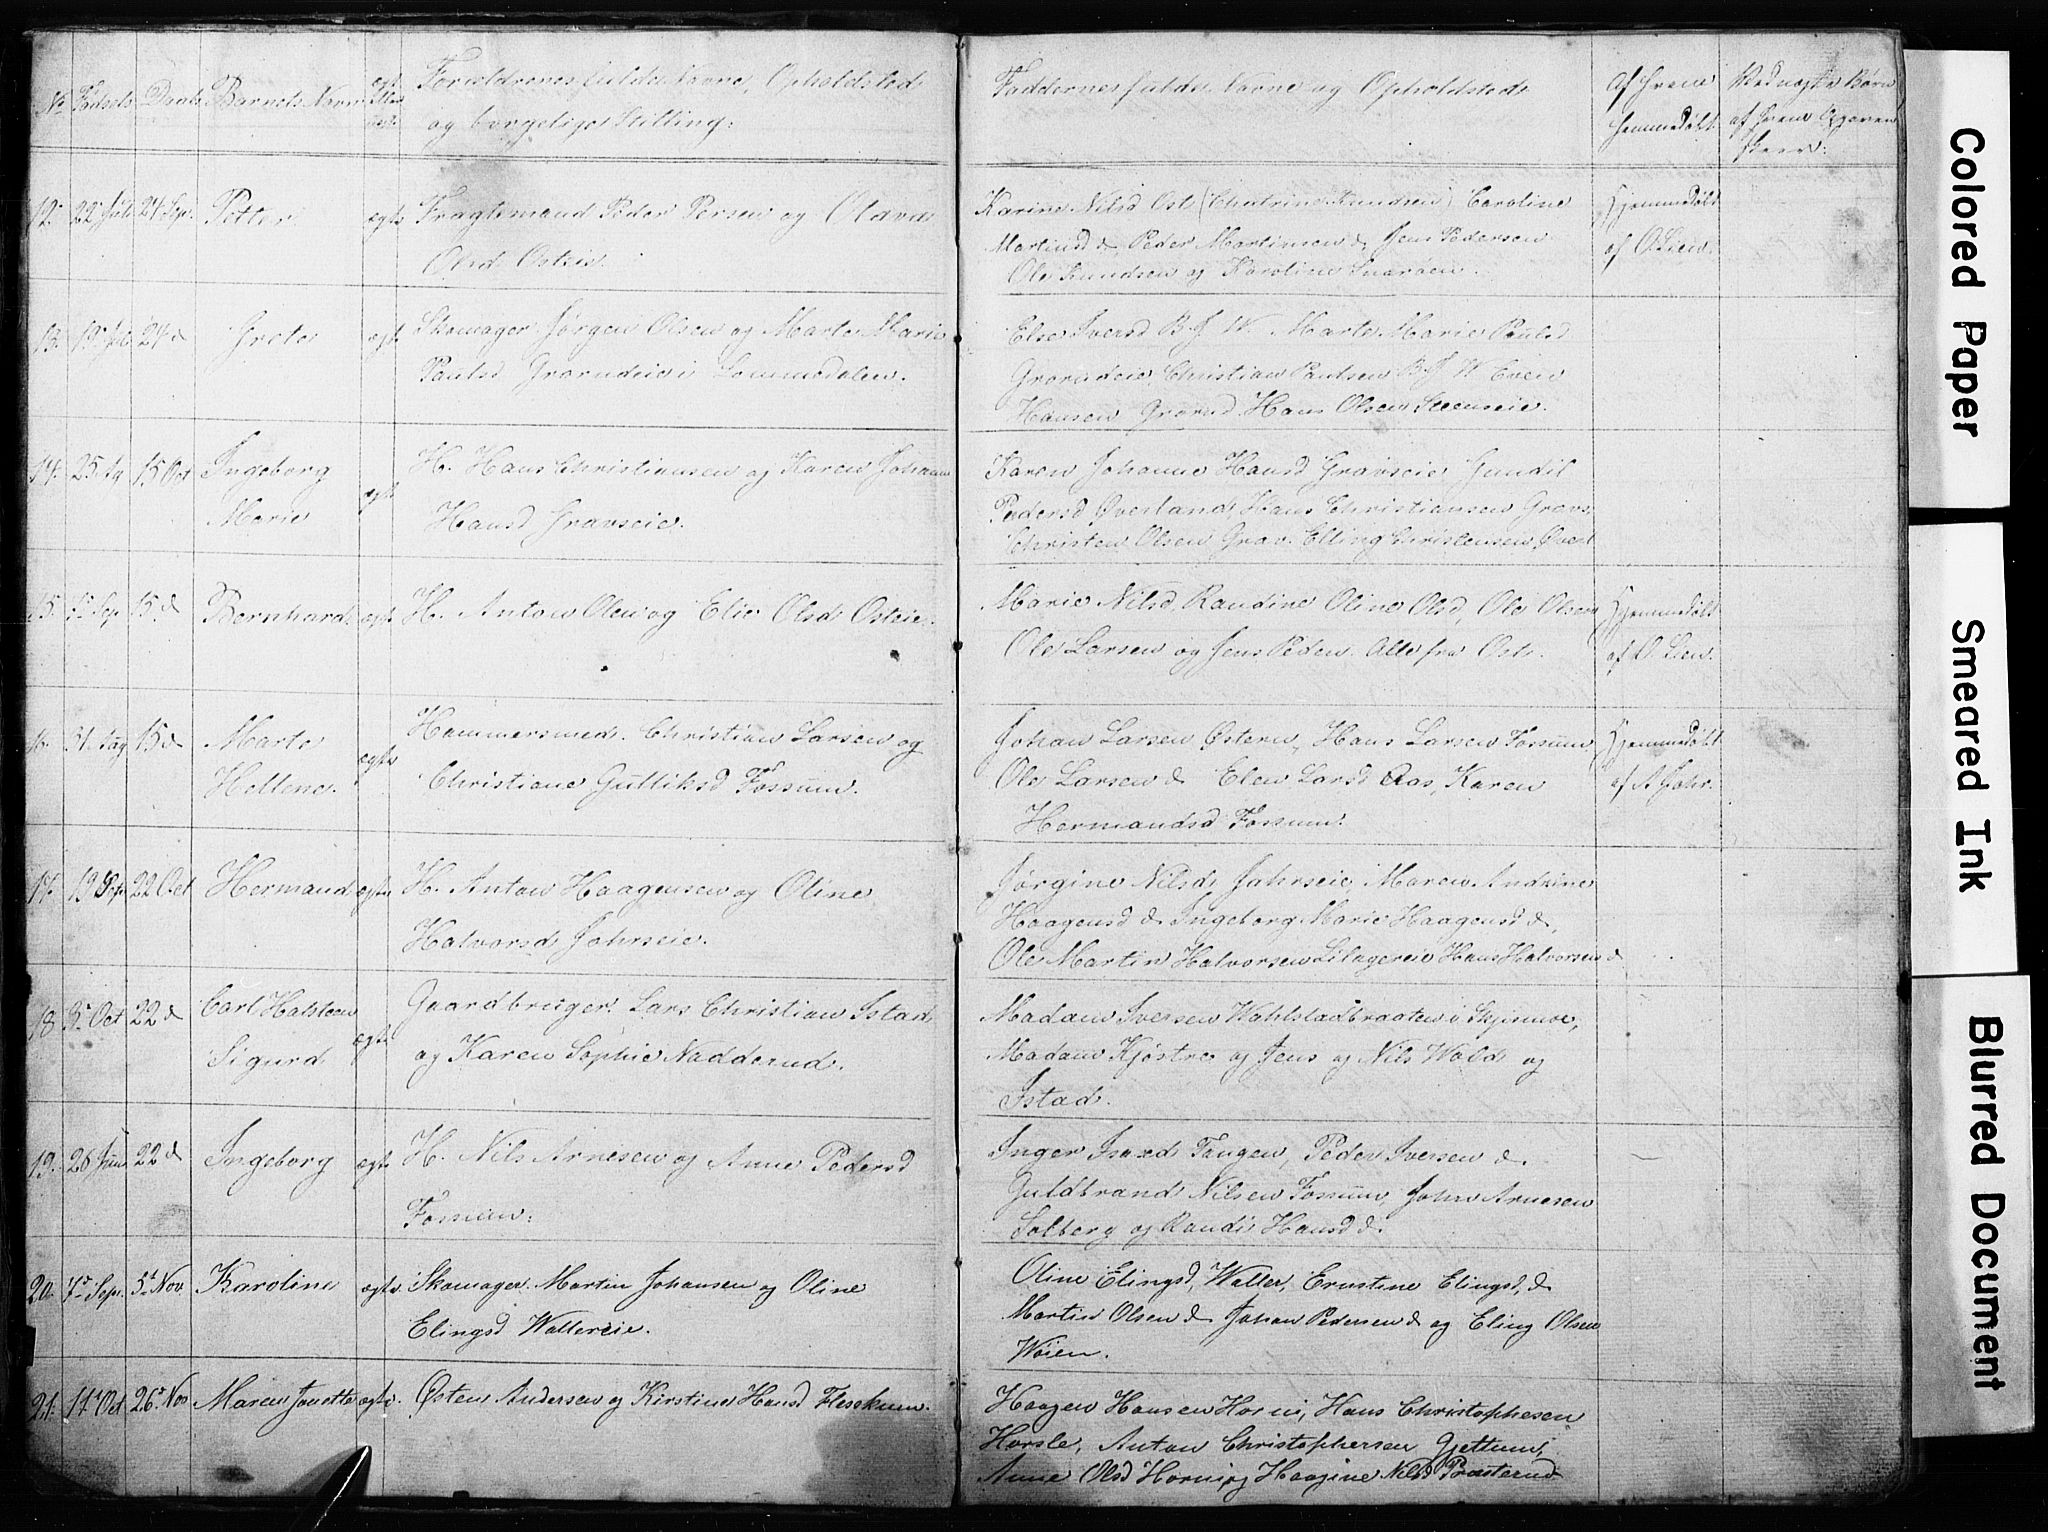 No Fødsels Daabs Barnets Navn ægte Eller uægt. Forældrenes fulde Navne, Opholdsted
og borgelige Stilling:
Faddernes fulde Navne og Opholdsted
Af hvem
hjemmedøbt
af hvem
12. 22 Juli 24 Sep. Petter ægte Fragtemand Peder Persen og Olava
Olsd Osteie.
Karine Nilsd Ost (Chatrine Knudsen) Caroline
Martinsd d, Peder Martinsen d, Jens Pedersen
Ole Knudsen og Karoline Snarøen.
Hjemmedøbt
af O. Lien.
13. 19 24 d Grete ægte Skomager Jørgen Olsen og Marte Marie
Paulsd Grorudeie i Lommedalen.
Else Iversd B J W. Marte Marie Paulsd
Grorudeie, Christian Paulsen B J W Even
Hansen Grorud. Hans Olsen Steenseie.
14. 25 Ag 15 Oct Ingeborg
Marie
ægte H. Hans Christiansen og Karen Johanne
Hansd Gravseie.
Karen Johanne Hansd Gravseie Gundil
Pedersd Øverland, Hans Christiansen Gravs
Christen Olsen Grav. Elling Christensen Øverl
15. 7 Sep 15 d Bernhard ægte H. Anton Olsen og Elie Olsd Osteie.
Marie Nilsd, Randine Oline Olsd, Ole Olsen
Ole Larsen og Jens Peders. Alle fra Ost.
Hjemmedøbt
af O. Lien.
16. 31. Aug 15 d Marte
Hellene.
ægte Hammersmed. Christian Larsen og
Christiane Gulliksd Fossum.
Johan Larsen Østern, Hans Larsen Fossum,
Ole Larsen d Elen Larsd Aas, Karen
Hermandsd Fossum.
Hjemmedøbt
af A Johr.
17. 19 Sep. 22 Oct Hermand ægte H. Anton Haagensen og Oline
Halvorsd Jahrseie.
Jørgine Nilsd Jahrseie, Maren Andrine
Haagensd d Ingeborg Marie Haagensd d,
Ole Martin Halvorsen Lilagereie Hans Halvorsen d
18 3 Oct 22 d Carl Halsteen
Sigurd
ægte Gaardbruger. Lars Christian Istad
og Karen Sophie Nadderud.
Madam Iversen Wahlstadbraaten i Skjerne,
Madam Kjøstre og Jens og Nils Wold og
Istad.
19. 26 Juni 22 d Ingeborg ægte H. Nils Arnesen og Anne Pedersd
Fossum.
Inger Isaxd Tangen, Peder Iversen d.
Guldbrand Nilsen Fossum, John Arnesen
Solberg og Randi Hansd d.
20. 7d Sep. 5t Nov Karoline ægte. Skomager. Martin Johansen og Oline
Elingsd Wallereie.
Oline Elingsd, Waller, Ernstine Elingsd, d
Martin Olsen d Johan Pedersen d og Eling Olsen
Wøien.
21. 11t Oct 26 Nov Maren Janette ægte. Østen Andersen og Kirstine Hansd Flesskum.
Haagen Hansen Horni, Hans Christophesen
Horsle, Anton Christophersen Gjettum,
Anne Olsd Horni og Haagine Nilsd Præsterud
Colored Paper
Smeared Ink
Blurred Document